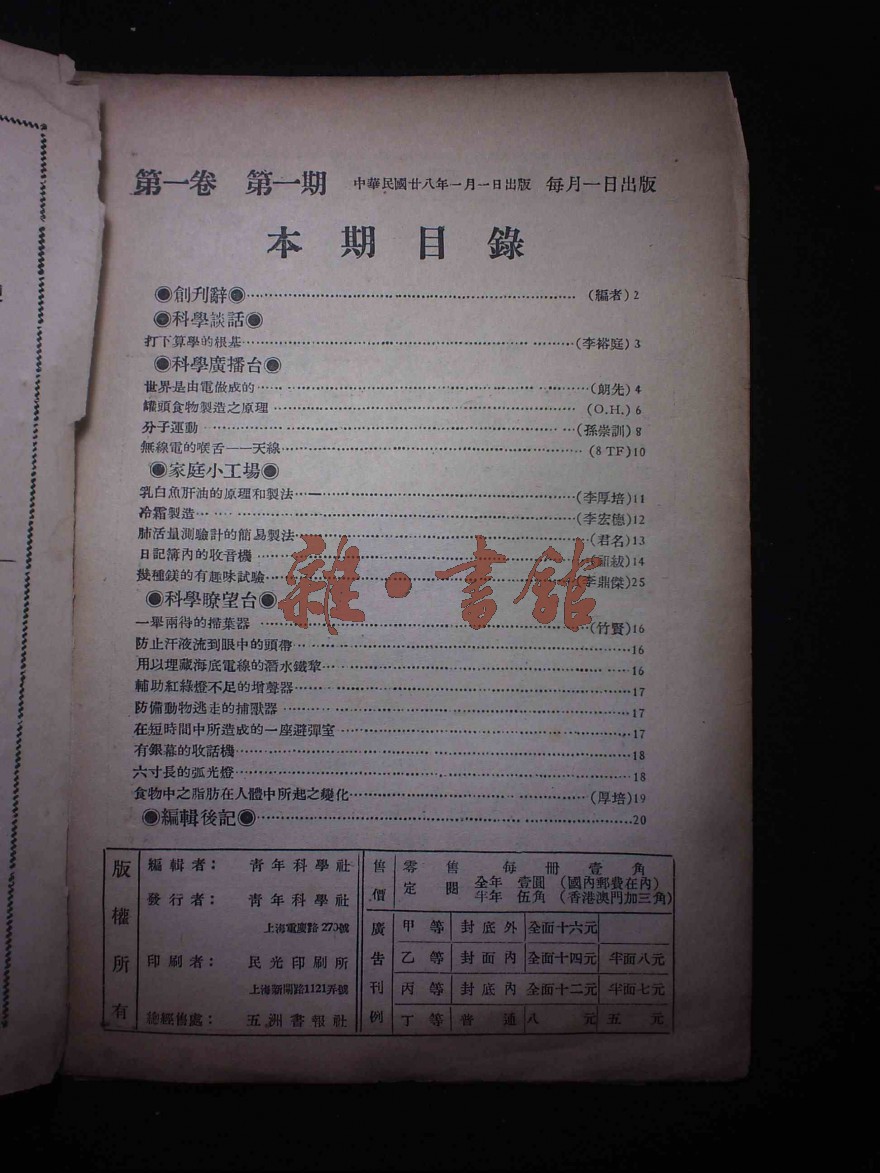 第一卷 第一期 中華民國廿八年一月一日出版 每月一日出版
本期目錄
◉創刊辭◉ (編者)2
◉科學談話◉
打下算學的根基 (李裕庭)3
◉科學廣播台◉
世界是由電做成的 (朗先)4
罐頭食物製造之原理 (O.H.)6
分子運動 (孫崇訓)8
無線電的喉舌——天線 (8 TF)10
◉家庭小工場◉
乳白魚肝油的原理和製法 (李厚培)11
冷霜製造 (李宏德)12
肺活量測驗計的簡易製法 (君名)13
日記簿內的收音機 紱)14
幾種鎂的有趣味試驗 (李鼎傑)25
◉科學瞭望台◉
一舉兩待的掃葉器 (竹賢)16
防止汗液流到眼中的頭帶 16
用以埋藏海底電線的潛水鐵犂 16
輔助紅綠燈不足的增聲器 17
防備動物逃走的捕獸器 17
在短時間中所造成的一座避彈室 17
有銀幕的收話機 18
六寸長的弧光燈 18
食物中之脂肪在人體中所起之變化 (厚培)19
◉編輯後記◉ 20
雜·書館
版權所有
編輯者： 青年科學社
發行者： 青年科學社
上海重慶路270號
印刷者： 民光印刷所
上海新閘路1121弄號
總經售處： 五洲書報社
售價
零售每冊壹角
定閱 全年 壹圓 (國內郵費在內)
半年 伍角 (香港澳門加三角)
廣告刊例
甲等 封底外 全面十六元
乙等 封面內 全面十四元 半面八元
丙等 封底內 全面十二元 半面七元
丁等 普通 八元 五元